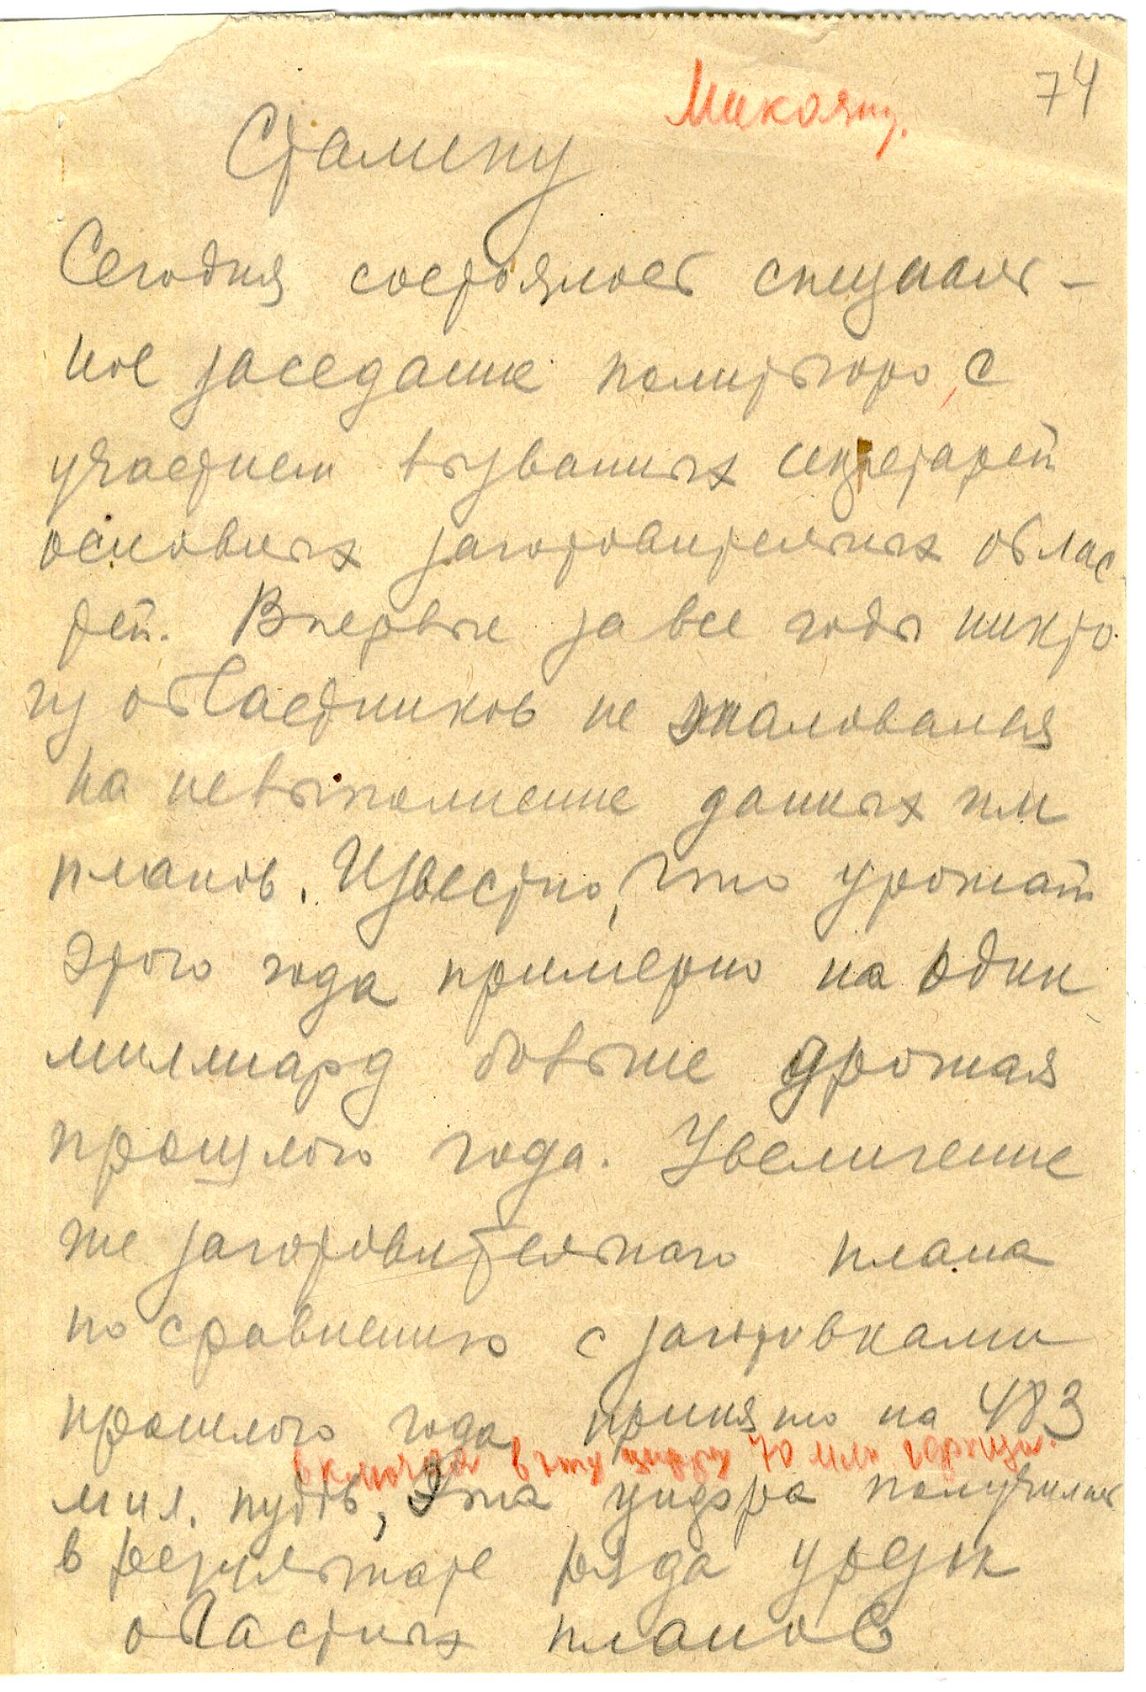 74
Микояну.
Сталину
Сегодня состоялось специаль-
ное заседание политбюро, с
участием вызванных секретарей
основных заготовительных облас-
тей. Впервые за все годы никто
из областников не жаловался
на невыполнение данных им
планов. Известно, что урожай
этого года примерно на один
миллиард больше урожая
прошлого года. Увеличение
же заготовительного плана
по сравнению с заготовками
прошлого года принято на 483
включая в эту цифру 70 мил
мил. пудов, эта цифра получилась
в результате ряда урезок
областных планов